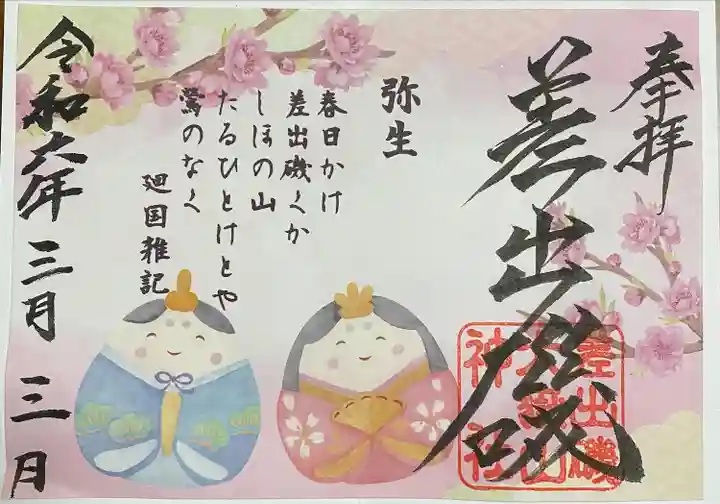 奉拝
差出磯
差出磯
大嶽山
神社
弥生
春日かけ
差出磯くか
しほの山
たるひとけとや
鶯のなく
廻国雑記
令和六年 三月 三日